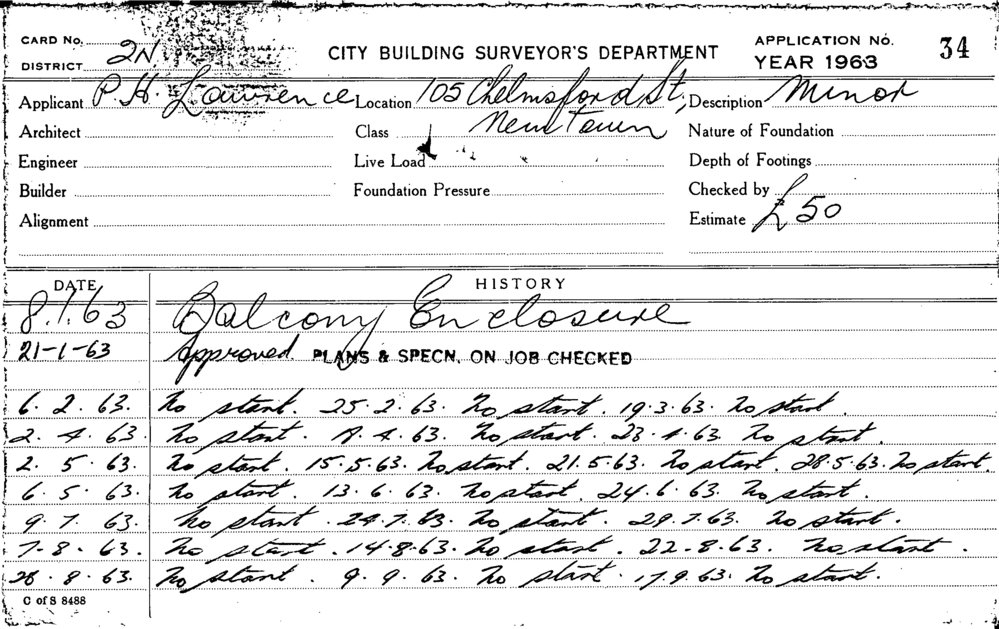 CARD No. 2N. CITY BUILDING SURVEYOR'S DEPARTMENT APPLICATION No. 34
DISTRICT YEAR 1963
Applicant P. H. Lawrence Location 105 Chelmsford St, Description Minor
Architect Class Newtown Nature of Foundation
Engineer Live Load Depth of Footings
Builder Foundation Pressure Checked by
Alignment Estimate £50
DATE HISTORY
8.1.63 Balcony Enclosure
21-1-63 Approved PLANS & SPECN. ON JOB CHECKED
6.2.63. No start. 25.2.63. No start. 19.3.63. No start.
2.4.63. No start. 9.4.63. No start. 23.4.63 No start.
2.5.63. No start. 15.5.63. No start. 21.5.63. No start. 28.5.63. No start.
6.5.63. No start. 13.6.63. No start. 24.6.63. No start.
9.7.63. No start. 24.7.63. No start. 29.7.63. No start.
7-8-63. No start. 14-8-63. No start. 22-8-63. No start.
28.8.63. No start. 9.9.63. No start. 17.9.63. No start.
C of S 8488